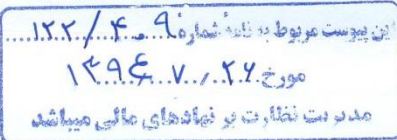 این پیوست مربوط به نامه شماره ۱۲۲/۴۰۰۹
مورخ ۱۳۹۶/۰۷/۲۶
مدیریت نظارت بر نهادهای مالی میباشد